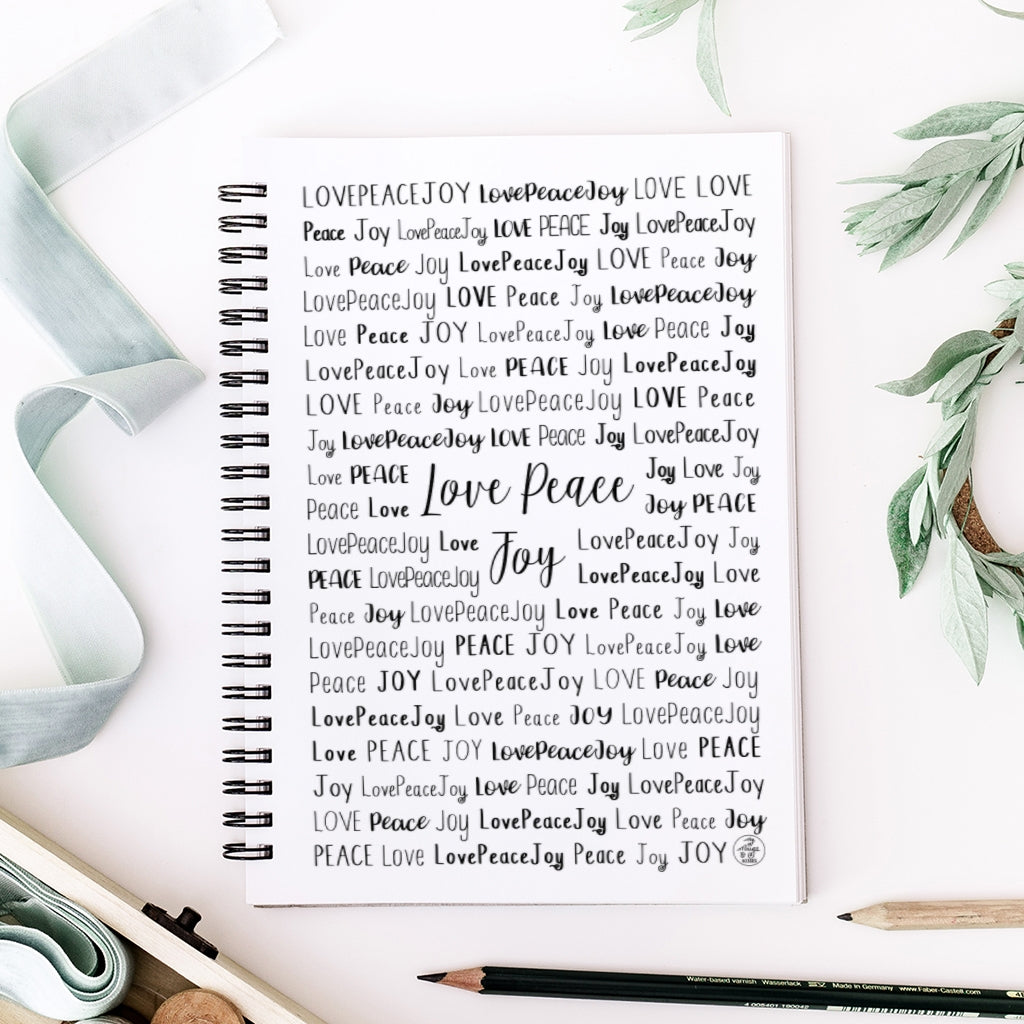 LOVEPEACEJOY LovePeaceJoy LOVE LOVE
Peace Joy LovePeaceJoy LOVE PEACE Joy LovePeaceJoy
Love Peace Joy LovePeaceJoy LOVE Peace Joy
LovePeaceJoy LOVE Peace Joy LovePeaceJoy
Love Peace JOY LovePeaceJoy Love Peace Joy
LovePeaceJoy Love PEACE Joy LovePeaceJoy
LOVE Peace Joy LovePeaceJoy LOVE Peace
Joy LovePeaceJoy LOVE Peace Joy LovePeaceJoy
Love PEACE
Peace Love
Love Peace
Joy Love Joy
Joy PEACE
LovePeaceJoy Love
PEACE LovePeaceJoy
Joy
LovePeaceJoy Joy
LovePeaceJoy Love
Peace Joy LovePeaceJoy Love Peace Joy Love
LovePeaceJoy PEACE JOY LovePeaceJoy Love
Peace JOY LovePeaceJoy LOVE Peace Joy
LovePeaceJoy Love Peace JOY LovePeaceJoy
Love PEACE JOY LovePeaceJoy Love PEACE
Joy LovePeaceJoy Love Peace Joy LovePeaceJoy
LOVE Peace Joy LovePeaceJoy Love Peace Joy
PEACE Love LovePeaceJoy Peace Joy JOY
Water-based varnish Wasserlack Made in Germany www.Faber-Castell.com
4 005401 190042